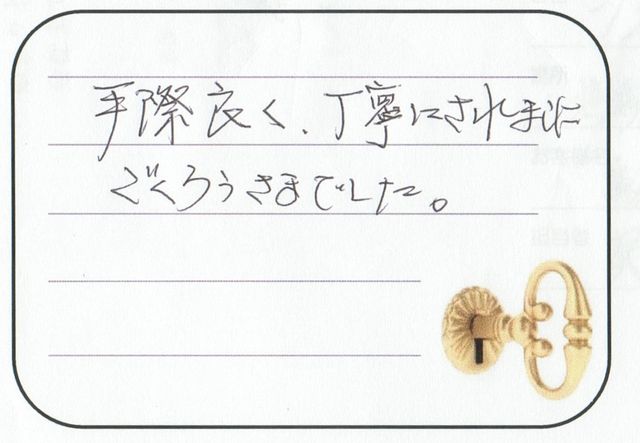 手際良く、丁寧にされました
ごくろうさまでした。